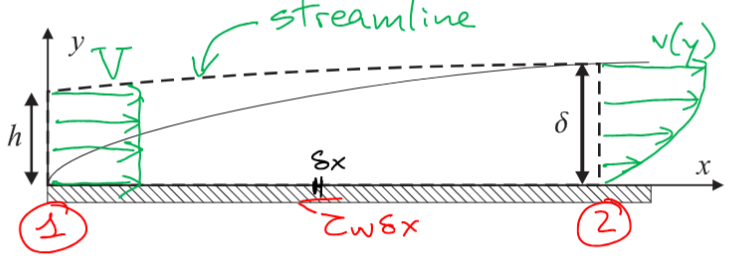 streamline
y
V
v(y)
h
δ
δx
x
τwδx
1
2